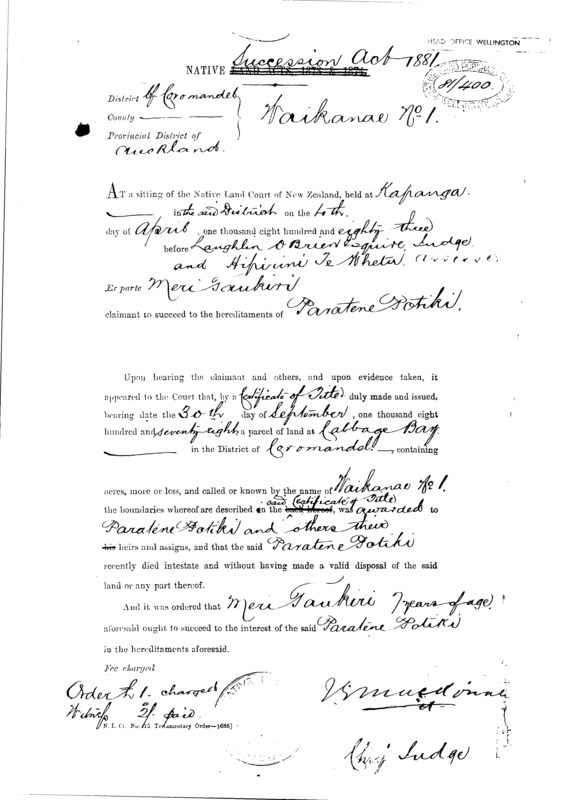 HEAD OFFICE WELLINGTON
Succession Act 1881
NATIVE LAND ACTS, 1873 & 1874
81/400
District of Coromandel
County
Provincial District of
Auckland.
Waikanae No 1.
AT a sitting of the Native Land Court of New Zealand, held at Kapanga.
in the said District on the
day of April, one thousand eight hundred and eighty three
before Laughlin O'Brien Esquire, Judge.
and Hipirini Te Whetu
Ex parte Meri Taukiri
claimant to succeed to the hereditaments of Paratene Potiki.
Upon hearing the claimant and others, and upon evidence taken, it
appeared to the Court that, by a Certificate of Title duly made and issued,
bearing date the 30th day of September, one thousand eight
hundred and seventy eight, a parcel of land at Cabbage Bay
in the District of Coromandel, containing
acres, more or less, and called or known by the name of Waikanae No 1.
said Certificate of Title
the boundaries whereof are described on the back hereof, was awarded to
Paratene Potiki and others their
his heirs and assigns, and that the said Paratene Potiki
recently died intestate and without having made a valid disposal of the said
land or any part thereof.
And it was ordered that Meri Taukiri 7 years of age
aforesaid ought to succeed to the interest of the said Paratene Potiki
in the hereditaments aforesaid.
Fee charged
Order £1. charged
Witness 2/. paid.
N. L. Ct. No. 15 Testamentary Order—1688]
Chief Judge